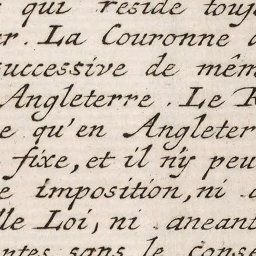 qui reside touj
r. La Couronne
successive de mêm
Angleterre. Le R
e qu'en Angleter
fixe, et il n'y peu
e imposition, ni
lle Loi, ni aneant
ntes sans le conse